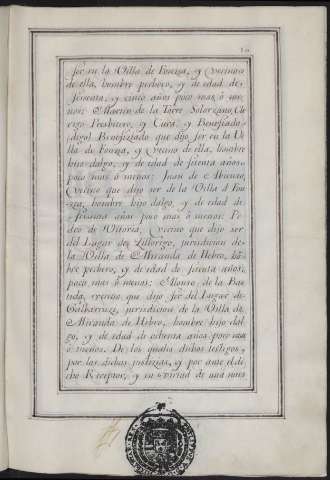 ser en la Villa de Fonzea, y Vecino
de ella, hombre pechero, y de edad de
setenta, y cinco años poco mas, ó me
nos: Martin de la Torre Solorzano, Cle
rigo Presbitero, y Cura, y Beneficado
digo) Beneficiado que dijo ser en la Vi
lla de Fonzea, y Vecino de ella, hombre
hijo dalgo, y de edad de setenta años
poco mas ó menos: Juan de
Vecino que dijo ser de la Villa d Fon
zea, hombre hijo dalgo, y de edad de
setenta años poco mas ó menos: Pe
dro de Vitoria, Vecino que dijo ser
del Lugar de Villorigo, jurisdicion de
la Villa de Miranda de Hebro, hõm
bre pechero, y de edad de setenta años,
poco mas ó menos: Alonso de la Bas
tida, vecino que dijo ser del Lugar de
Galbarruz, jurisdicion de la Villa de
Miranda de Hebro, hombre hijo dal
go, y de edad de ochenta años poco mas
ó menos. De los quales dichos testigos,
por las dichas justizias, y por ante el di
cho Rezeptor, y en virtud de una nues